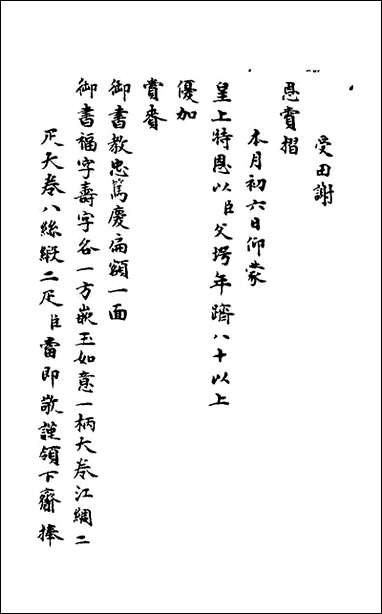 受田謝
恩賞摺
本月初六日仰蒙
皇上特恩以臣父堮年躋八十以上
優加
賞賚
御書教忠篤慶扁額一面
御書福字壽字各一方嵌玉如意一柄大卷江綢二
疋大卷八絲緞二疋臣當即敬謹領下齋捧